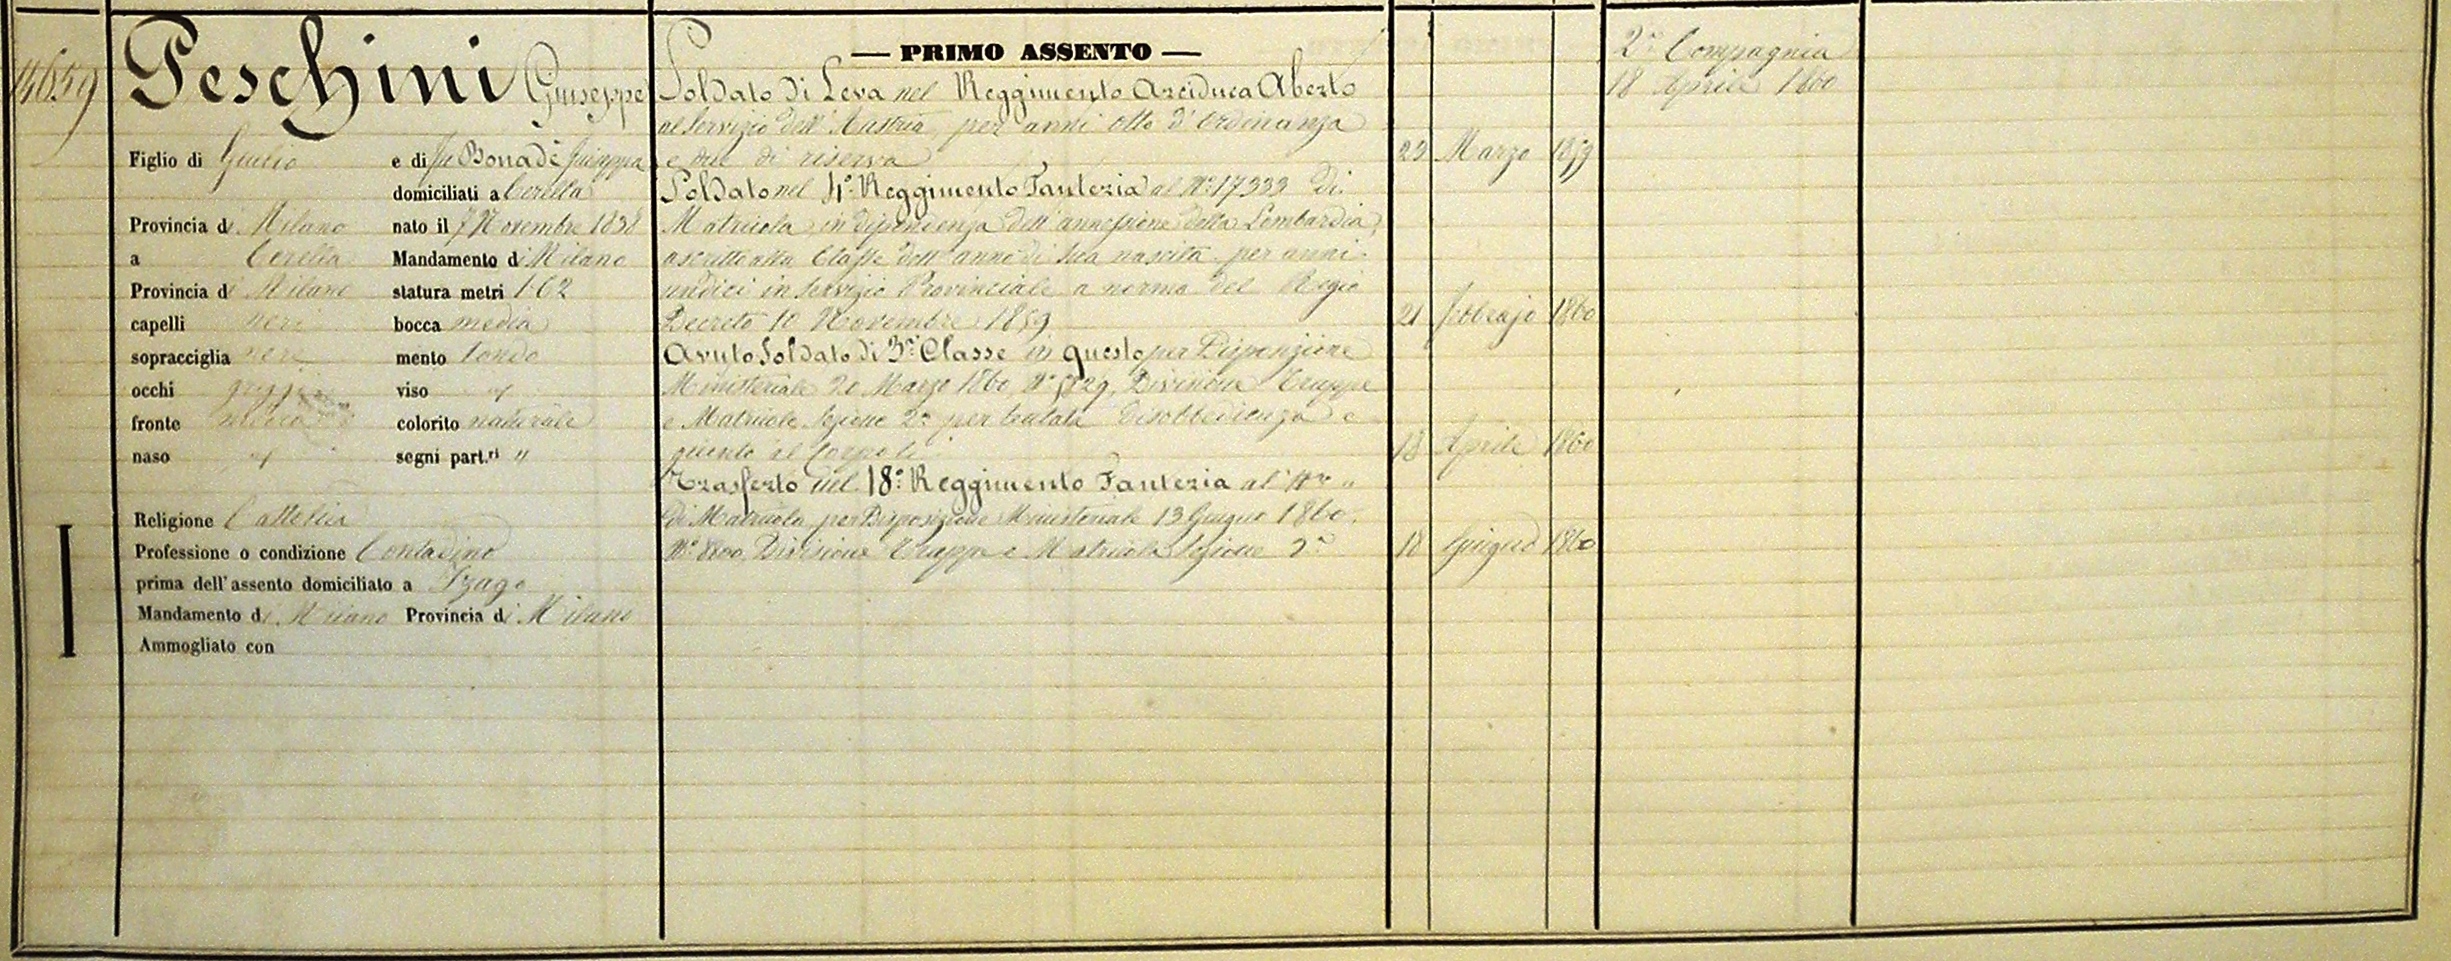 14659
Peschini Giuseppe
Figlio di Giulio e di fu Bonadè Giuseppa
domiciliati a Cerella
Provincia di Milano nato il 7 Novembre 1838
a Cerella Mandamento di Milano
Provincia di Milano statura metri 1.62
capelli neri bocca media
sopracciglia neri mento tondo
occhi griggi viso
fronte media colorito naturale
naso segni part.ri "
Religione Cattolica
Professione o condizione Contadino
prima dell'assento domiciliato a Izago
Mandamento di Milano Provincia di Milano
Ammogliato con
— PRIMO ASSENTO —
Soldato di Leva nel Reggimento Arciduca Alberto
al Servizio dell'Austria, per anni otto d'ordinanza
e due di riserva 23 Marzo 1859
Soldato nel 4º Reggimento Fanteria al Nº 17333 di
Matricola, in dipendenza dell'annessione della Lombardia,
ascritto alla Classe dell'anno di sua nascita per anni
undici in Servizio Provinciale a norma del Regio
Decreto 10 Novembre 1859 21 Febbrajo 1860
Avuto Soldato di 3ª Classe in questo per Dispozione
Ministeriale 20 Marzo 1860 Nº 5829, Divisione Truppe
e Matricole Sezione 2ª per disobbedienza e
al 18 Aprile 1860
Trasferto nel 18º Reggimento Fanteria al Nº "
di Matricola per Disposizione Ministeriale 13 Giugno 1860,
Nº 8800, Divisione Truppe e Matricola Sezione 2ª 18 Giugno 1860
2ª Compagnia
18 Aprile 1860